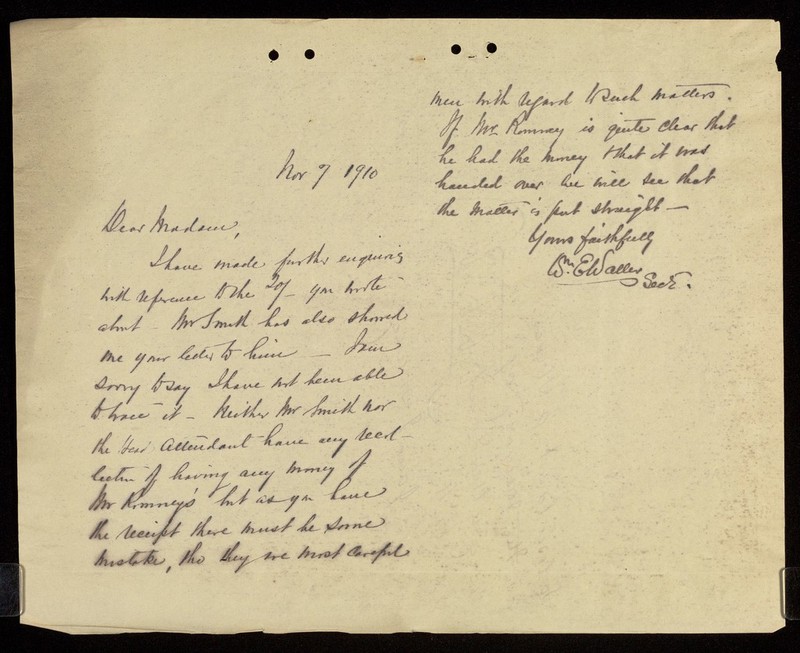 Nov 9 1910
Dear Madam,
I have made further enquiries
with reference to the 20/- you wrote
about - Mr Smith has also showed
me your letter to him - I am
sorry to say I have not been able
to trace it - Neither Mr Smith nor
the Head Attendant have any recol-
lection of having any money of
Mr Romney's but as you have
the receipt there must be some
mistake, tho they are most careful
men with regard to such matters.
If Mr Romney is quite clear that
he had the money & that it was
handed over we will see that
the matter is put straight -
Yours faithfully
Wm. E Waller
Secy.